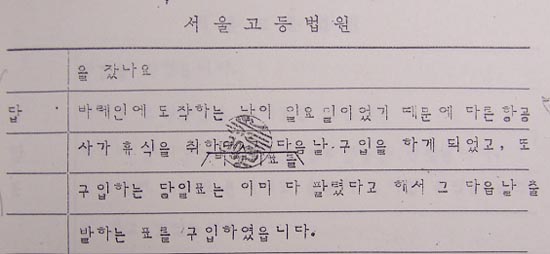 서울고등법원
을 갔나요
답 바레인에 도착하는 날이 일요일이었기 때문에 다른항공
사가 휴식을 취 다음날 구입을 하게 되었고, 또
표를
구입하는 당일표는 이미 다 팔렸다고 해서 그 다음날 출
발하는 표를 구입하였읍니다.